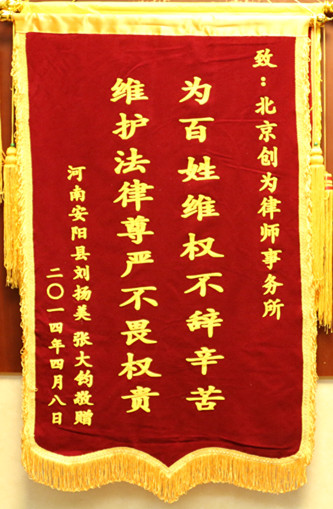 致：北京创为律师事务所
为百姓维权不辞辛苦
维护法律尊严不畏权贵
河南安阳县刘扬美 张大钧敬赠
二〇一四年四月八日